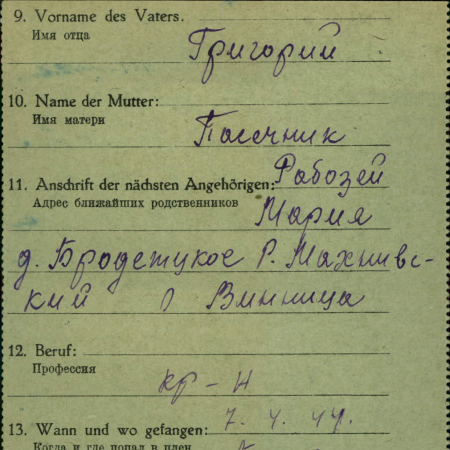 9. Vorname des Vaters.
Имя отца
Григорий
10. Name der Mutter:
Имя матери
Пасечник
11. Anschrift der nächsten Angehörigen: Рабозей
Адрес ближайших родственников
Мария
д. Бродецкое Р. Махнивс-
кий О Винница
12. Beruf:
Профессия
кр-н
13. Wann und wo gefangen: 7. 4. 44.
Когда и где попал в плен